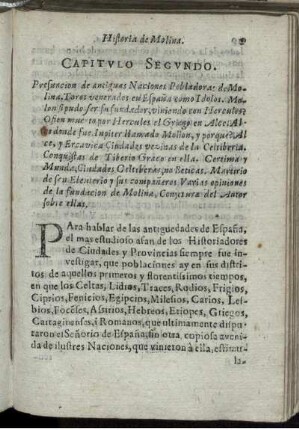 Historia de Molina.
CAPITVLO SEGVNDO.
Presuncion de antiguas Naciones Pobladoras de Mo-
lina. Toros venerados en España como Idolos. Mo-
lon pudo ser su fundador, viniendo con Hercules.
Osien muerto por Hercules el Griego en Alcei Al-
donde fue. Iupiter llamado Mollon, y porque? Al-
ce, y Ercavica Ciudades vezinas de la Celtiberia.
Conquistas de Tiberio Graco en ella. Certima y
Munda, Ciudades Celtiberas, no Beticas. Martirio
de sru Eleuterio y sus compañeros Varias opiniones
de la fundacion de Molina, Conjetura del Autor
sobre ellas.
PAra hablar de las antiguedades de España,
el mas estudioso afan de los Historiadores
de Ciudades y Provincias siempre fue in-
vestigar, que poblaciones ay en sus distri-
tos de aquellos primeros y florentissimos tiempos,
en que los Celtas, Lidios, Traces, Rodios, Frigios,
Ciprios, Fenicios, Egipcios, Milesios, Carios, Les-
bios, Focéses, Assirios, Hebreos, Etiopes, Griegos,
Cartaginenses, i Romanos, que ultimamente dispu-
taron el Señorio de España, sin otra copiosa ave-
nida de ilustres Naciones, que vinieron à ella, estimu-
la-